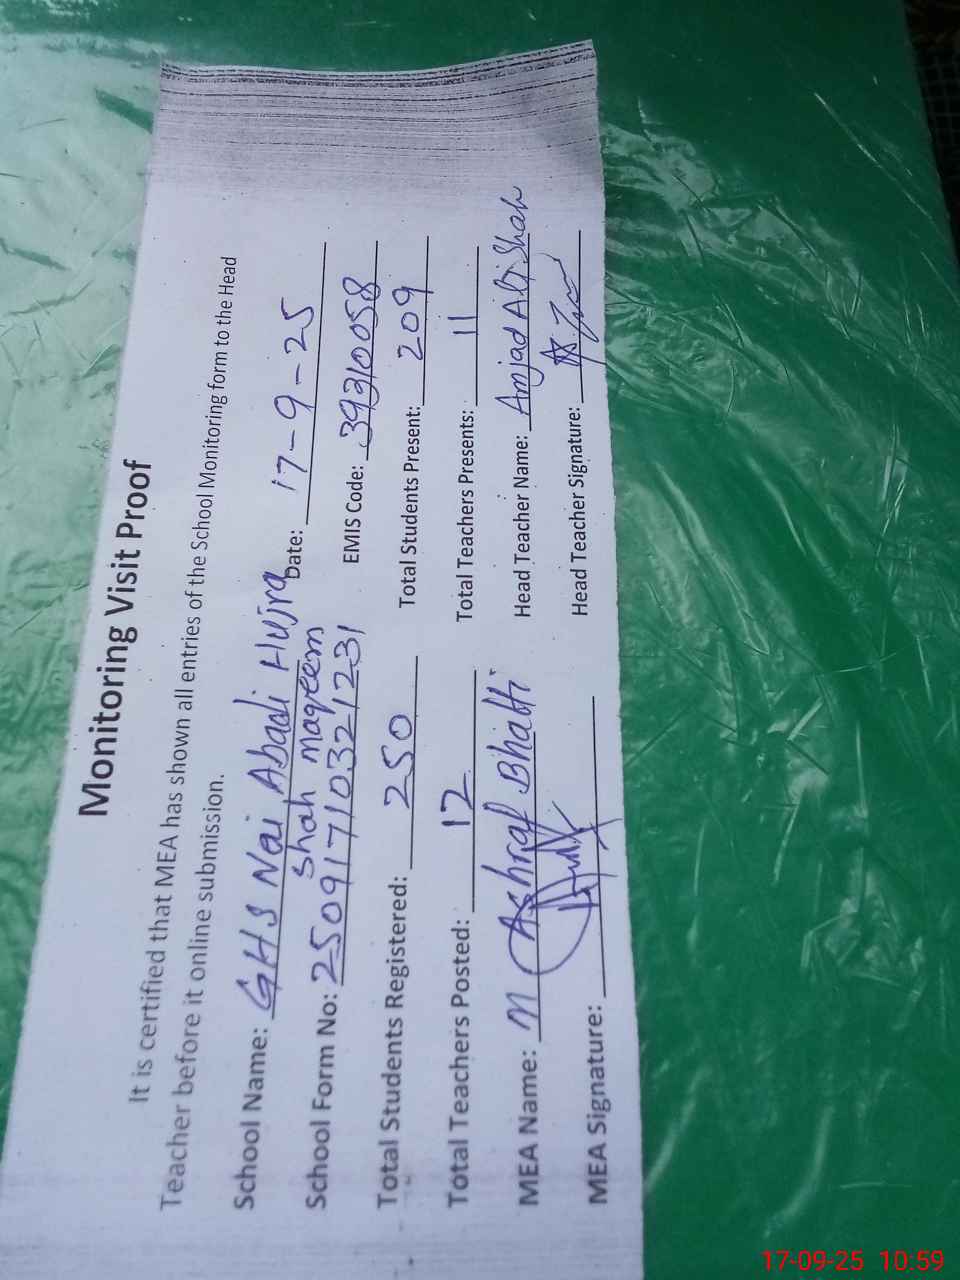 Monitoring Visit Proof
It is certified that MEA has shown all entries of the School Monitoring form to the Head
Teacher before it online submission.
School Name: GHS Nai Abadi Hujra
Shah maqeem
Date: 17-9-25
School Form No: 25091710321231
EMIS Code: 39310058
Total Students Registered: 250
Total Students Present: 209
Total Teachers Posted: 12
Total Teachers Presents: 11
MEA Name: M Ashraf Bhatti
Head Teacher Name: Amjad Ali Shah
MEA Signature:
Head Teacher Signature:
17-09-25 10:59